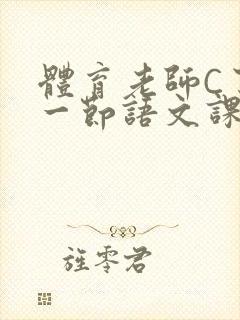 體育老師C了
一節語文課
旌零君